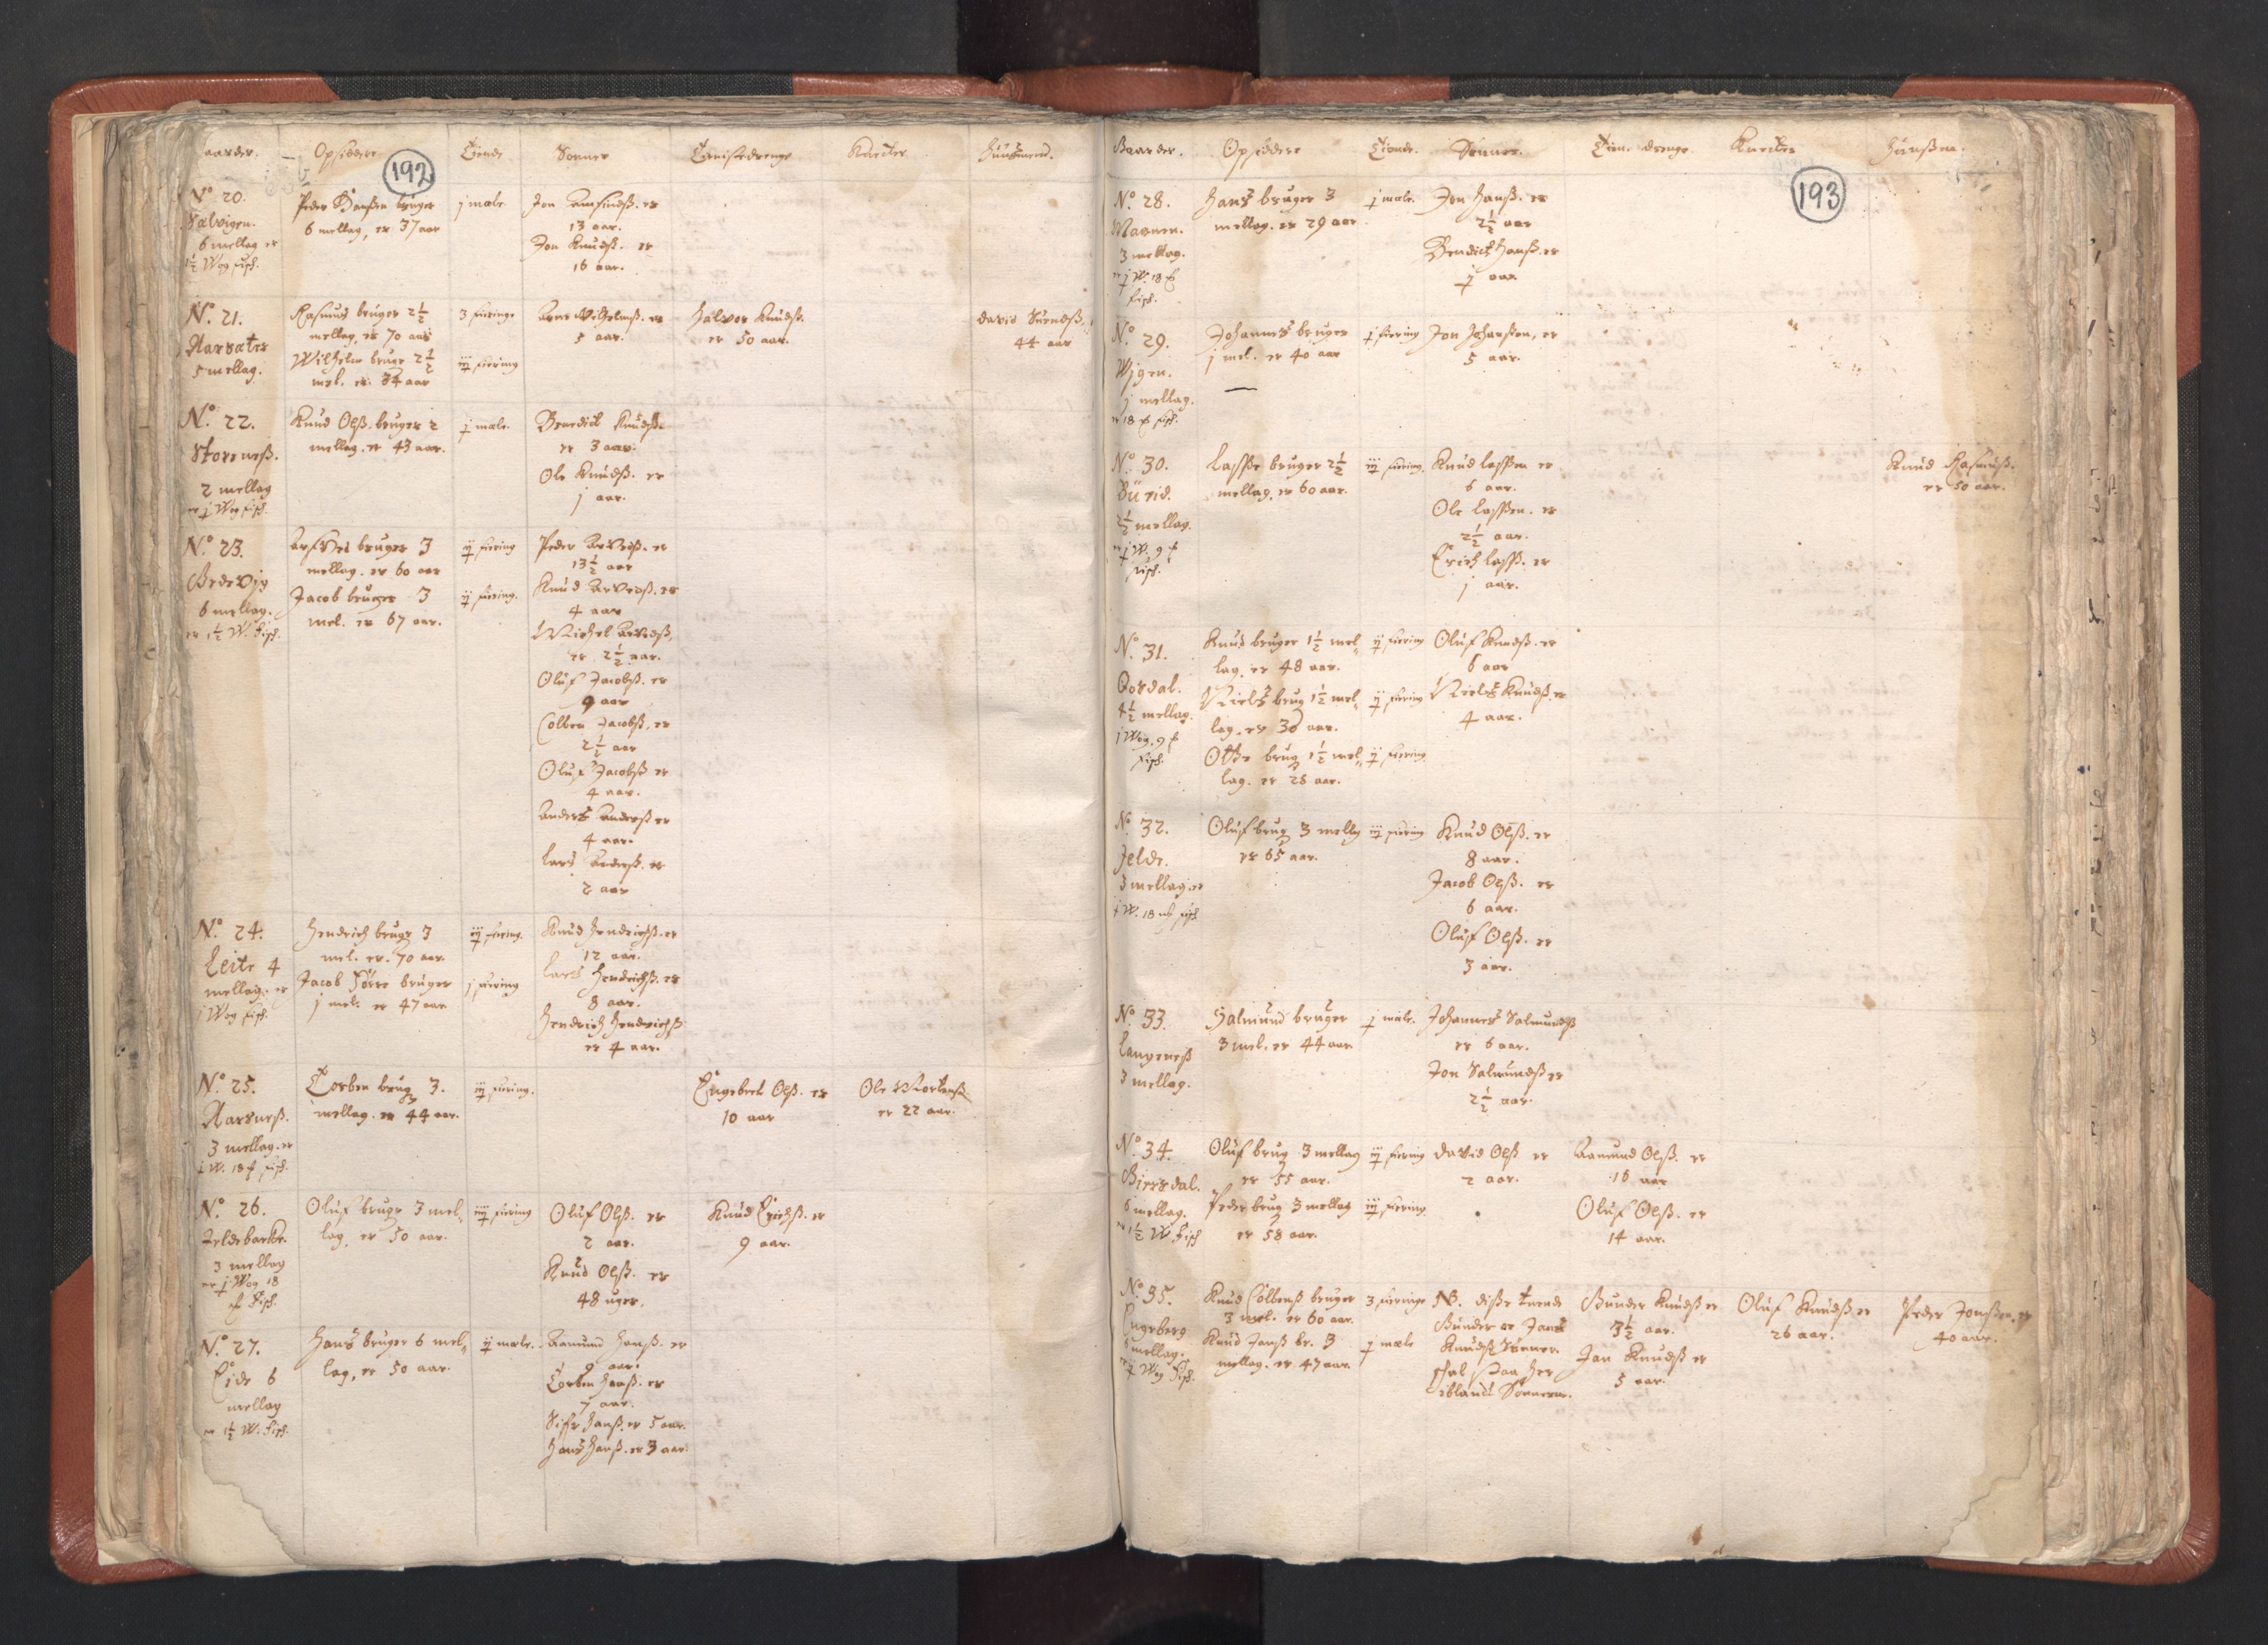 aarder. Opsiddere Tiende Sønner Tienistedrenge Knecter Huusmend.
192
N.o 20.
Sælvigen.
6 mellag er
1½ Wog fisch.
Peder Hansen bruger
6 mellag, er 37 aar
j mæle.
Jon Amfindß. er
13 aar.
Jon Knudß. er
16 aar.
N.o 21.
Aarsæter
5 mellag.
Rasmus bruger 2½
mellag, er 70 aar
Wilhelm bruger 2½
mel. er 34 aar
3 fieringe
iij fiering
Arne Wilhelmß. er
5 aar.
Halvor Knudß.
er 50 aar.
David Suendß.
44 aar
N.o 22.
Storeneß.
2 mellag
er j Wog fisch.
Knud Olß. bruger 2
mellag. er 43 aar.
j mæle.
Benedict Knudß.
er 3 aar.
Ole Knudß. er
j aar.
N.o 23.
Bredvig
6 mellag.
er 1½ W. fisch.
Arfved bruger 3
mellag. er 60 aar
Jacob bruger 3
mel. er 67 aar.
ij fiering
ij fiering.
Peder Arvedß. er
13½ aar
Knud Arvedß. er
4 aar
Michel Arvedß.
er 2½ aar.
Oluf Jacobß. er
9 aar
Colben Jacobß. er
2½ aar
Oluf Jacobß er
4 aar.
Anders Anderß er
4 aar.
Lars Anderß. er
2 aar
N.o 24.
Leite 4
mellag. er
j Wog fisch.
Hendrich bruger 3
mel. er 70 aar.
Jacob Sørre bruger
j mel. er 47 aar
iij fiering.
j fiering
Knud Hendrichß. er
12 aar.
Lars Hendrichß. er
8 aar.
Hendrich Hendrichß
er 4 aar.
N.o 25.
Aarsneß.
3 mellag. er
j W. 18 fisch.
Torben brug 3.
mellag. er 44 aar.
iij fiering.
Engebret Olß. er
10 aar
Ole Mortenß.
er 22 aar.
N.o 26.
Jeldebacke.
3 mellag
er j Wog 18
fisch.
Oluf bruger 3 mel=
lag, er 50 aar.
iij fiering
Oluf Olß. er
2 aar.
Knud Olß. er
48 uger.
Knud Erichß. er
9 aar.
N.o 27.
Eide 6
mellag
er 1½ W. fisch.
Hans bruger 6 mel=
lag, er 50 aar.
ij mæle.
Aamund Hanß. er
9 aar.
Torben Hanß. er
7 aar.
Sifr Hanß. er 5 aar.
Hans Hanß. er 3 aar.
Gaarder. Opsiddere Tiende. Sønner. Tien. drenge. Knecter Husßm.
193
N.o 28.
Maanen.
3 mellag.
er j W. 18
fisch.
Hans bruger 3
mellag. er 29 aar
j mæle.
Jon Hanß. er
2½ aar
Bendict Hanß. er
j aar
N.o 29.
Wigen.
j mellag.
er 18 fisch.
Johannes bruger
j mel. er 40 aar
j fiering
Jon Johanßen, er
5 aar.
N.o 30.
Burid.
2½ mellag.
er j W. 9
fisch.
Lasse bruger 2½
mellag, er 60 aar.
iij fiering.
Knud Lassen er
6 aar.
Ole Lassen. er
2½ aar.
Erich Lasß. er
j aar.
Knud Rasmuß.
er 50 aar.
N.o 31.
Qosdal.
4½ mellag.
j Wog. 9
fisch.
Knud bruger 1½ mel=
lag. er 48 aar.
Niels brug 1½ mel=
lag. er 30 aar.
Otte brug 1½ mel=
lag. er 28 aar.
ij fiering
ij fiering
ij fiering
Oluf Knudß. er
6 aar
Niels Knudß. er
4 aar.
N.o 32.
Jelde.
3 mellag. er
j W. 18 fisch
Oluf brug 3 mellag
er 65 aar.
iij fiering
Knud Olß. er
8 aar.
Jacob Olß. er
6 aar.
Oluf Olß. er
3 aar.
N.o 33.
Langeneß
3 mellag.
Salmund bruger
3 mel. er 44 aar
j mæle.
Johannes Salmundß
er 6 aar.
Jon Salmundß er
2½ aar.
N.o 34.
Biersdal.
6 mellag.
er 1½ W fisch
Oluf brug 3 mellag
er 55 aar.
Peder brug 3 mellag
er 58 aar.
iij fiering
iij fiering.
David Olß er
2 aar.
Aamund Olß. er
16 aar
Oluf Olß. er
14 aar.
N.o 35.
Engeberg
6 mellag.
Wog fisch.
Knud Colbenß bruger
3 mel. er 60 aar.
Knud Janß br. 3
mellag. er 47 aar.
3 fieringe
j mæle
NB. disse tvende
Gunder oc Jan
Knudß Sønner.
schal staa her
iblant Sønnerne.
Gunder Knudß er
3½ aar.
Jan Knudß er
5 aar.
Oluf Knudß. er
26 aar.
Peder Jonßen, er
40 aar.